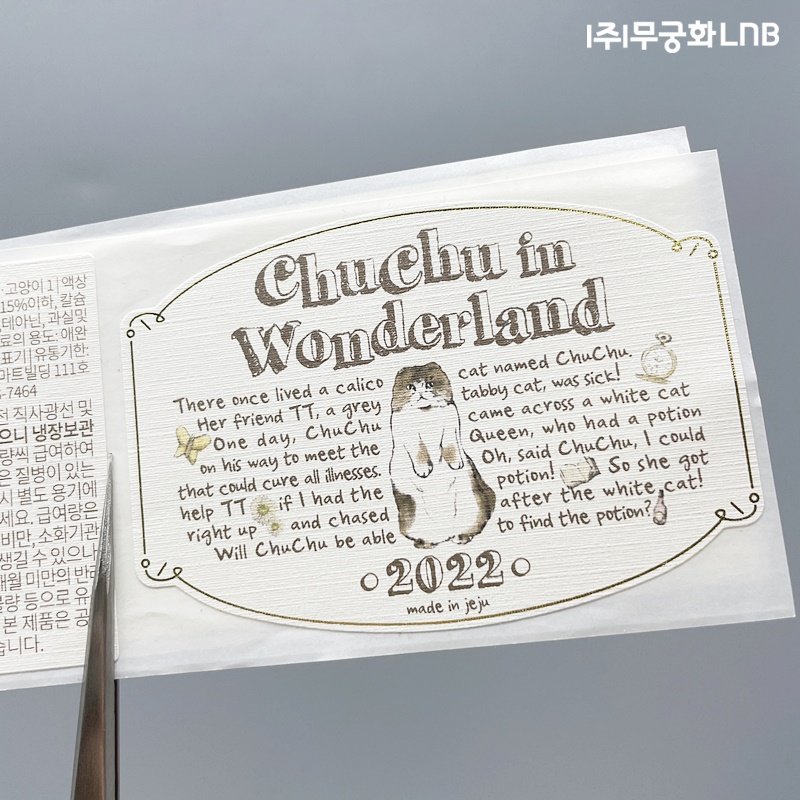 (주)무궁화LNB
ChuChu in
Wonderland
There once lived a calico cat named ChuChu.
Her friend TT, a grey tabby cat, was sick!
One day, ChuChu came across a white cat
on his way to meet the Queen, who had a potion
that could cure all illnesses. Oh, said ChuChu, I could
help TT if I had the potion! So she got
right up and chased after the white cat!
Will ChuChu be able to find the potion?
2022
made in jeju
고양이 1 | 액상
15%이하, 칼슘
테아닌, 과실및
료의 용도: 애완
표기 | 유통기한:
마트빌딩 111호
-7464
직사광선 및
으니 냉장보관
량씩 급여하여
은 질병이 있는
시 별도 용기에
세요. 급여량은
비만, 소화기관
생길 수 있으나
개월 미만의 반려
불량 등으로 유
본 제품은 공
습니다.